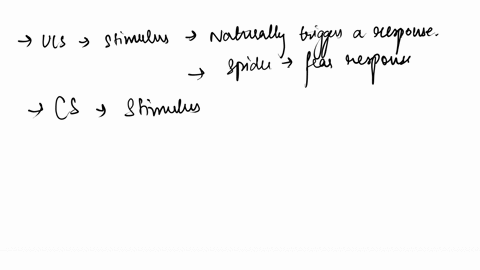 → UCS → stimulus → Naturally trigger a response.
→ spider → fear response
→ CS → stimulus